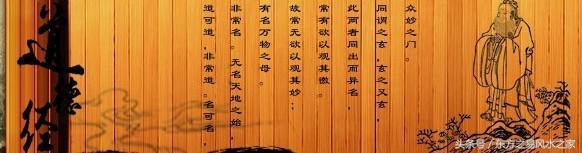 道德经
道可道，非常道。名可名，
非常名。无名天地之始，
有名万物之母。
故常无欲以观其妙；
常有欲以观其徼。
此两者同出而异名，
同谓之玄，玄之又玄
众妙之门。
头条号/东方之易风水之家